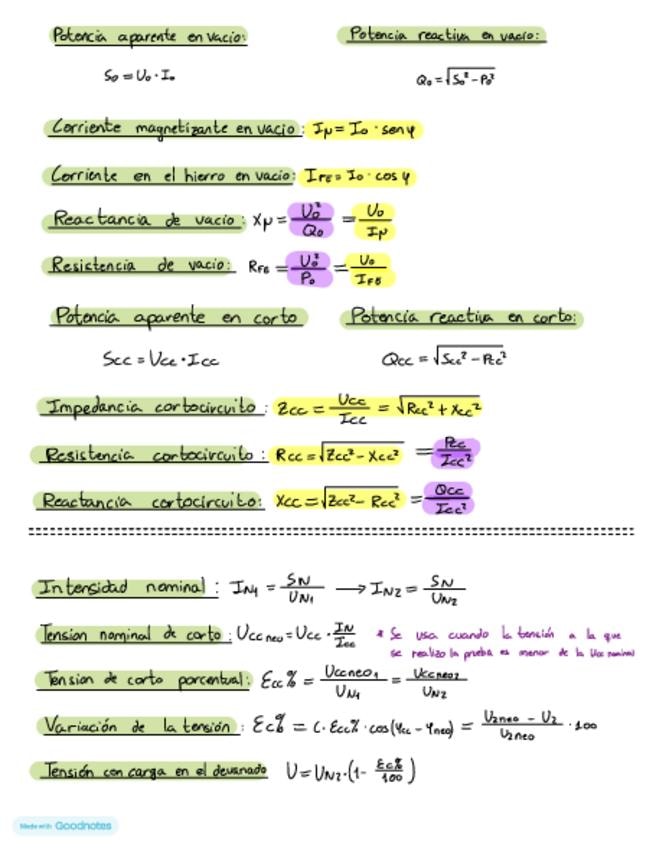 Potencia aparente en vacío: Potencia reactiva en vacío:
S₀ = U₀ · I₀ Q₀ = √(S₀² - P₀²)
Corriente magnetizante en vacío: Iμ = I₀ · sen φ
Corriente en el hierro en vacío: I_FE = I₀ · cos φ
Reactancia de vacío: Xμ = U₀²/Q₀ = U₀/Iμ
Resistencia de vacío: R_FE = U₀²/P₀ = U₀/I_FE
Potencia aparente en corto Potencia reactiva en corto:
Scc = Ucc · Icc Qcc = √(Scc² - Pcc²)
Impedancia cortocircuito: Zcc = Ucc/Icc = √(Rcc² + Xcc²)
Resistencia cortocircuito: Rcc = √(Zcc² - Xcc²) = Pcc/Icc²
Reactancia cortocircuito: Xcc = √(Zcc² - Rcc²) = Qcc/Icc²
Intensidad nominal: I_N1 = S_N/U_N1 → I_N2 = S_N/U_N2
Tension nominal de corto: Ucc neo = Ucc · I_N/Icc * Se usa cuando la tensión a la que
se realizo la prueba es menor de la Ucc nominal
Tension de corto porcentual: Ecc% = Uccneo1/U_N1 = Uccneo2/U_N2
Variación de la tensión: Ec% = C · Ecc% · cos(φcc - φneo) = (U2neo - U2)/U2neo · 100
Tensión con carga en el devanado U = U_N2 · (1 - Ec%/100)
Made with Goodnotes